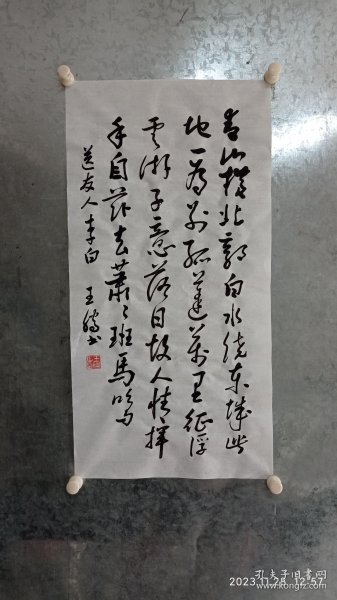 青山横北郭白水绕东城此
地一为别孤蓬万里征浮
云游子意落日故人情挥
手自兹去萧々班马鸣
送友人李白 王 书
2023.11.28 12:57
孔夫子旧书网
www.kongfz.com